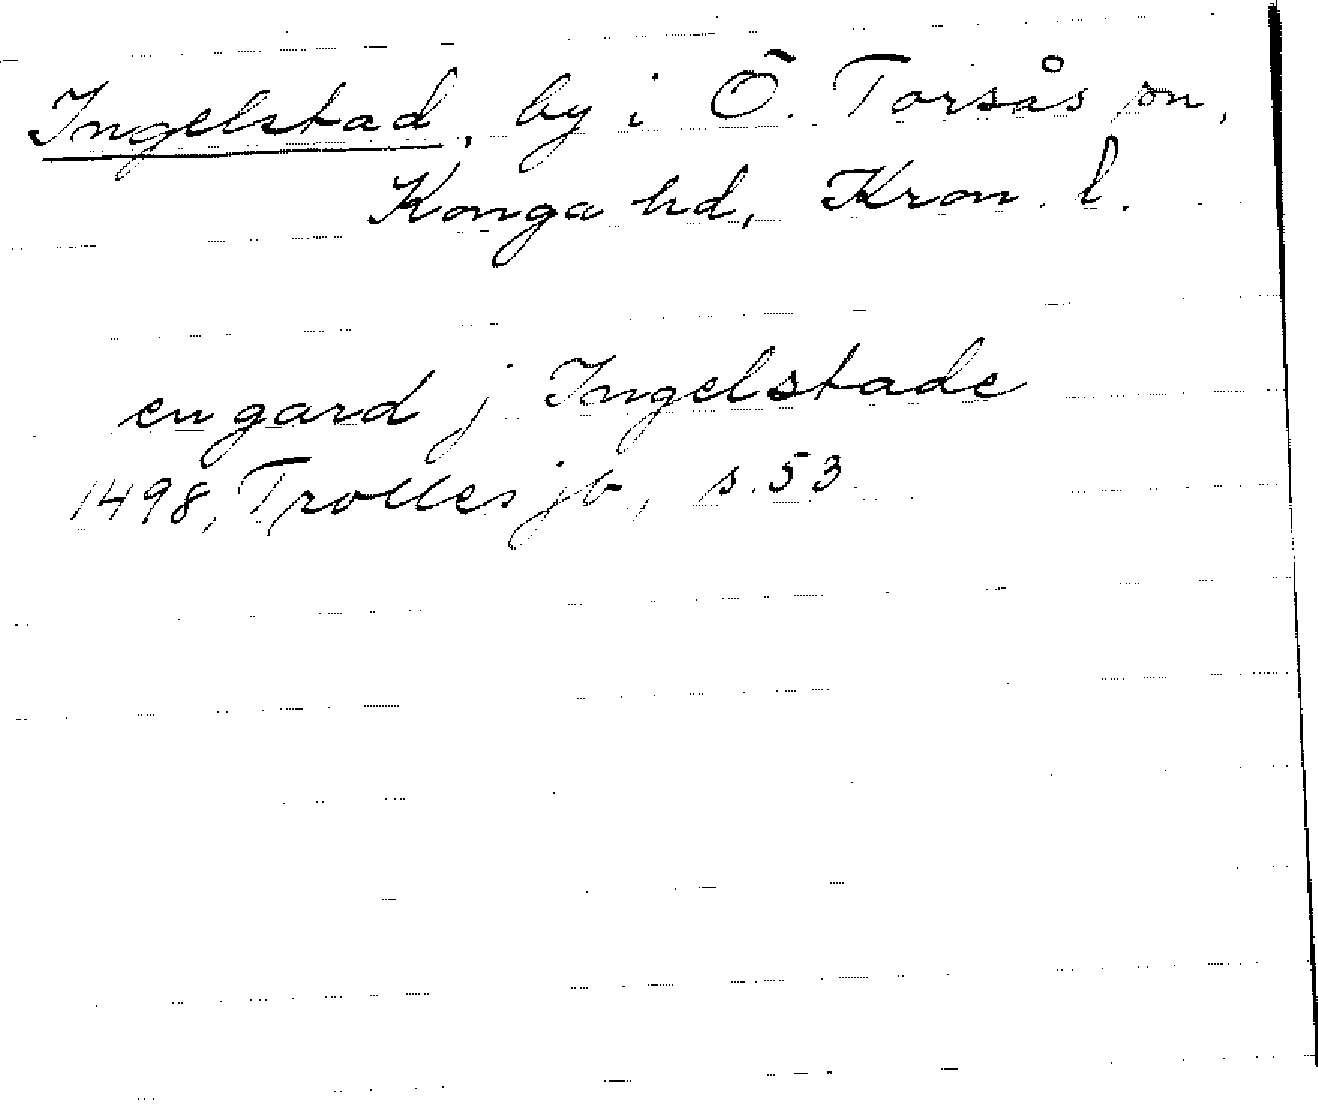 Ingelstad, by i Ö. Torsås sn,
Konga hd, Kron. l.
en gard j Ingelstade
1498, Trolles jb, s. 53